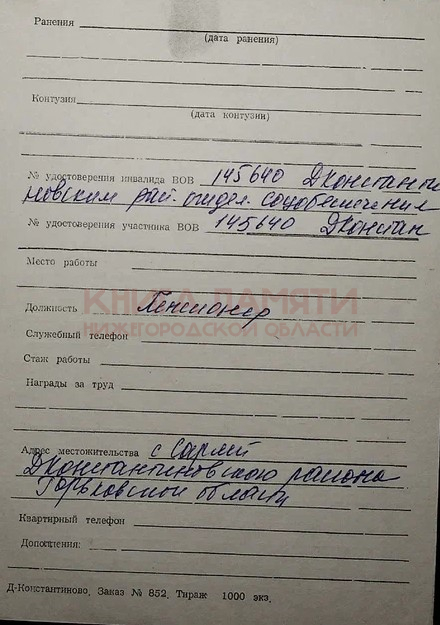 Ранения
(дата ранения)
Контузия
(дата контузии)
№ удостоверения инвалида ВОВ 145640 ДКонстанти
новским рай. отдел. соцобеспечения
№ удостоверения участника ВОВ 145640 ДКонстан
Место работы
КНИГА ПАМЯТИ
Должность Пенсионер
НИЖЕГОРОДСКОЙ ОБЛАСТИ
Служебный телефон
Стаж работы
Награды за труд
Адрес местожительства с Сарлей
ДКонстантиновского района
Горьковской области
Квартирный телефон
Дополнения:
Д-Константиново, Заказ № 852, Тираж 1000 экз.